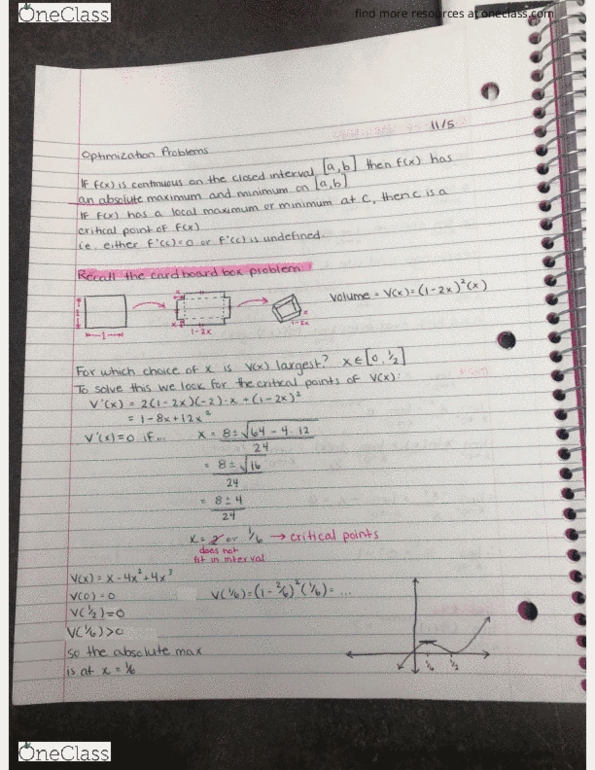 OneClass
find more resources at oneclass.com
11/5
Optimization Problems
If f(x) is continuous on the closed interval [a,b] then f(x) has
an absolute maximum and minimum on [a,b]
If f(x) has a local maximum or minimum at c, then c is a
critical point of f(x)
i.e. either f'(c)=0 or f'(c) is undefined.
Recall the cardboard box problem!
Volume = V(x) = (1-2x)²(x)
1
1
x
x
1-2x
x
1-2x
For which choice of x is V(x) largest? x ∈ [0, 1/2]
To solve this we look for the critical points of V(x):
V'(x) = 2(1-2x)(-2)·x + (1-2x)²
= 1-8x+12x²
V'(x)=0 if... x = 8±√64-4·12
24
= 8±√16
24
= 8±4
24
x = 2 or 1/6 → critical points
does not
fit in interval
V(x) = x-4x²+4x³
V(0)=0 V(1/6)=(1-2/6)²(1/6)=...
V(1/2)=0
V(1/6)>0
so the absolute max
is at x = 1/6
1/6 1/2
OneClass